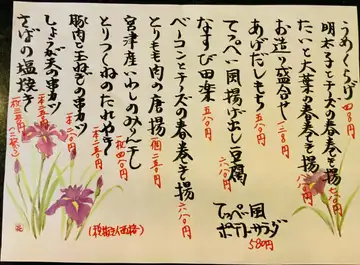 うめくらげ 四八〇円
明太子とチーズの春巻き揚 七〇〇円
たこと大葉の春巻き揚 六八〇円
お造り盛合せ
あげだしもち 五八〇円
てっぺい風揚げ出し豆腐
なすび田楽 五八〇円
ベーコンとチーズの春巻き揚 六八〇円
とりもも肉の唐揚
宮津産いわしのみりん干し
とりつくねのたれやき
豚肉と玉ねぎの串カツ
しょうが天の串カツ
さばの塩焼
てっぺい風
ポテトサラダ
580円
(税抜き価格)